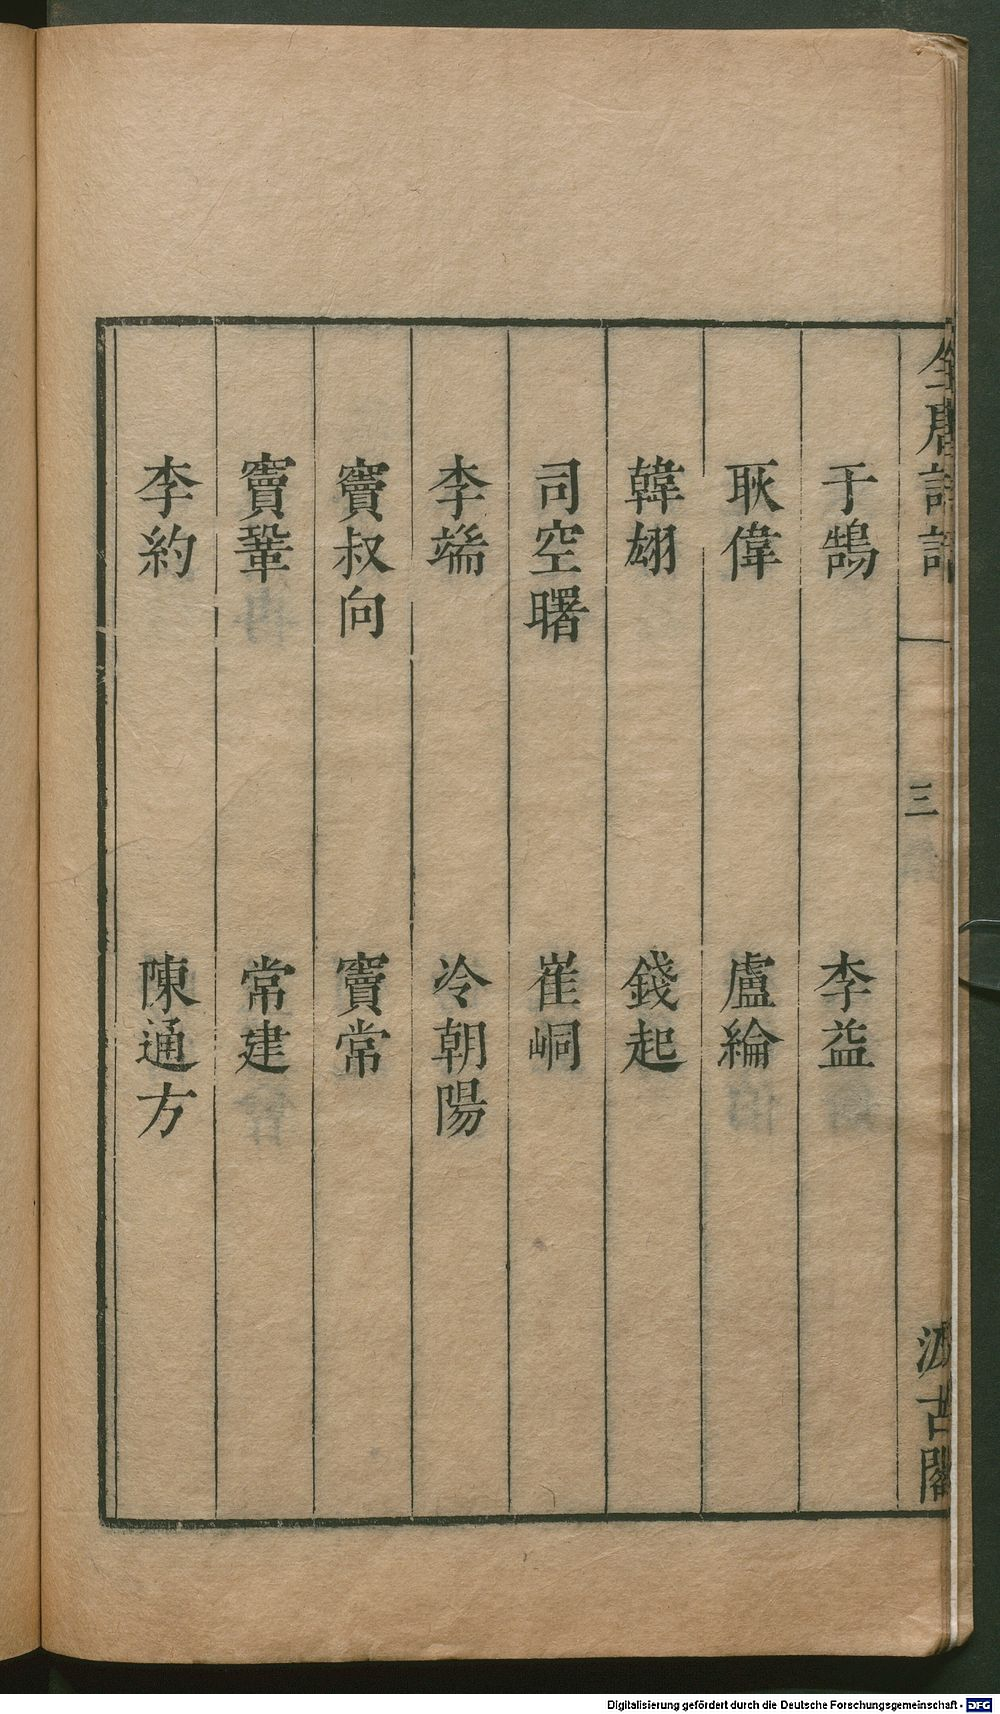 全唐詩話
三
汲古閣
于鵠 李益
耿偉 盧綸
韓翃 錢起
司空曙 崔峒
李端 冷朝陽
竇叔向 竇常
竇鞏 常建
李約 陳通方
Digitalisierung gefördert durch die Deutsche Forschungsgemeinschaft - DFG